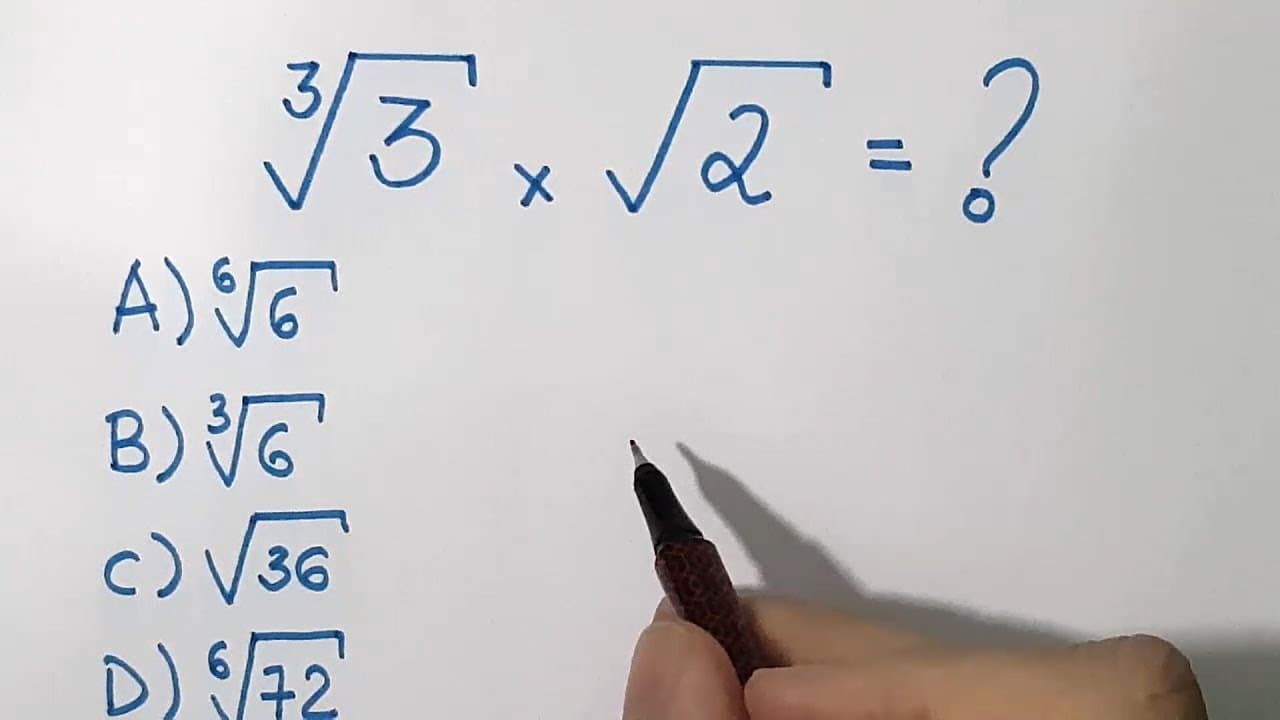 ∛3 × √2 = ?
A) ⁶√6
B) ∛6
C) √36
D) ⁶√72